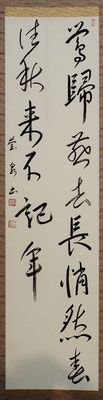 鶯歸燕去長悄然春
往秋来不記年